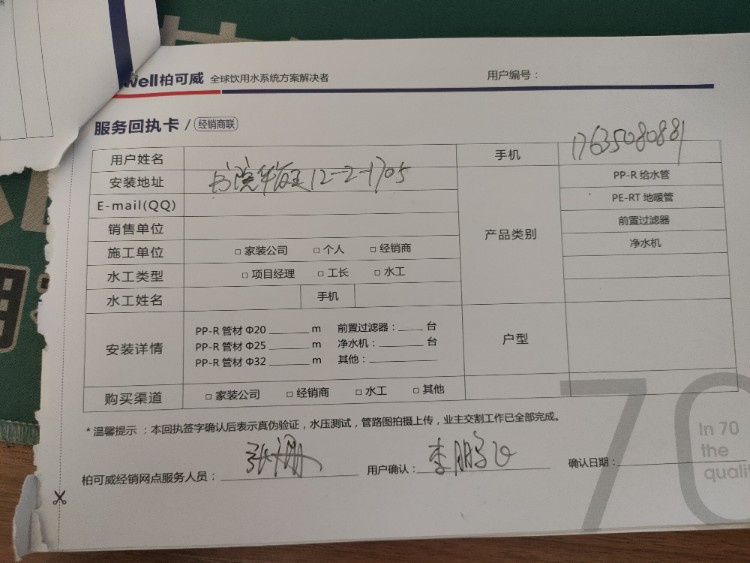 well柏可威 全球饮用水系统方案解决者 用户编号：
服务回执卡 / 经销商联
用户姓名 手机 17635080881
安装地址 12-2-1705 PP-R 给水管
E-mail(QQ) PE-RT 地暖管
销售单位 产品类别 前置过滤器
施工单位 □ 家装公司 □ 个人 □ 经销商 净水机
水工类型 □ 项目经理 □ 工长 □ 水工
水工姓名 手机
安装详情 户型
PP-R 管材 Φ20 ______ m 前置过滤器：____ 台
PP-R 管材 Φ25 ______ m 净水机：______ 台
PP-R 管材 Φ32 ______ m 其他：________
购买渠道 □ 家装公司 □ 经销商 □ 水工 □ 其他
* 温馨提示 ：本回执签字确认后表示真伪验证，水压测试，管路图拍摄上传，业主交割工作已全部完成。
柏可威经销网点服务人员： 张 用户确认： 李鹏飞 确认日期：
70
In 70
the
quali